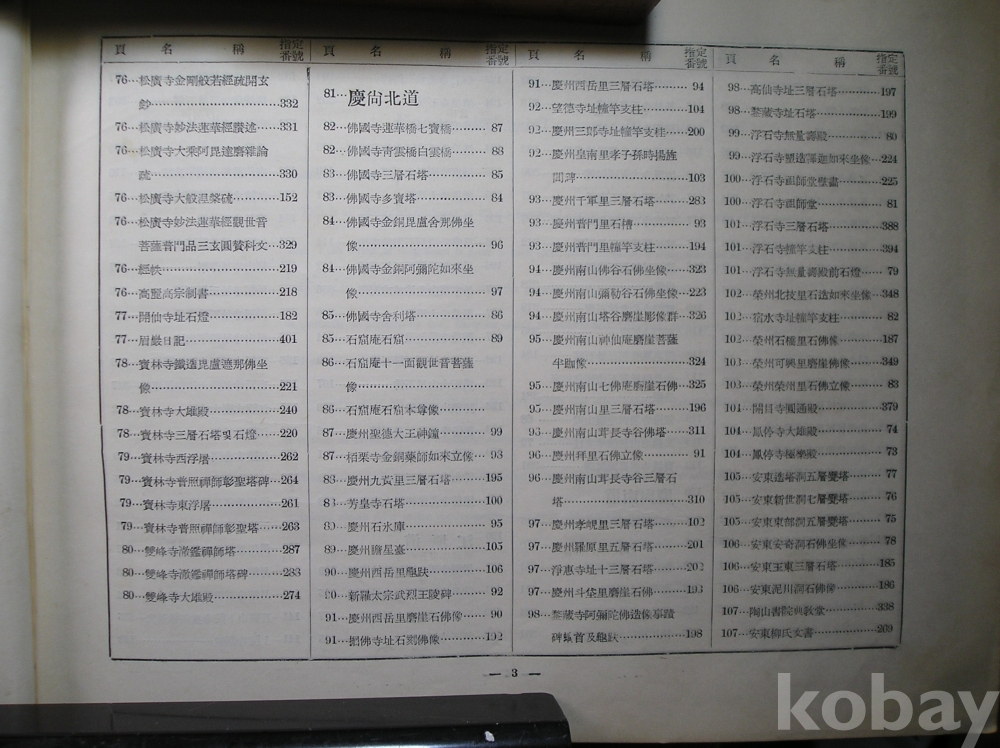 頁 名 稱 指定番號
76…松廣寺金剛般若經疏開玄
鈔……332
76…松廣寺妙法蓮華經讚述…331
76…松廣寺大乘阿毘達磨雜論
疏……330
76…松廣寺大般涅槃經疏……152
76…松廣寺妙法蓮華經觀世音
菩薩普門品三玄圓贊科文…329
76…經帙……219
76…高麗高宗制書……218
77…開仙寺址石燈……182
77…眉巖日記……401
78…寶林寺鐵造毘盧遮那佛坐
像……221
78…寶林寺大雄殿……240
78…寶林寺三層石塔및石燈……220
79…寶林寺西浮屠……262
79…寶林寺普照禪師彰聖塔碑…264
79…寶林寺東浮屠……261
79…寶林寺普照禪師彰聖塔…263
80…雙峰寺澈鑑禪師塔……287
80…雙峰寺澈鑑禪師塔碑……288
80…雙峰寺大雄殿……274
頁 名 稱 指定番號
81…慶尙北道
82…佛國寺蓮華橋七寶橋……87
82…佛國寺靑雲橋白雲橋……88
83…佛國寺三層石塔……85
83…佛國寺多寶塔……84
84…佛國寺金銅毘盧舍那佛坐
像……96
84…佛國寺金銅阿彌陀如來坐
像……97
85…佛國寺舍利塔……86
85…石窟庵石窟……89
86…石窟庵十一面觀世音菩薩
像……
86…石窟庵石窟本尊像……
87…慶州聖德大王神鐘……99
87…栢栗寺金銅藥師如來立像…93
88…慶州九黃里三層石塔……195
88…芳皇寺石塔……100
89…慶州石氷庫……95
89…慶州瞻星臺……105
90…慶州西岳里龜趺……106
90…新羅太宗武烈王陵碑……92
91…慶州西岳里磨崖石佛像……90
91…掘佛寺址石刻佛像……192
頁 名 稱 指定番號
91…慶州西岳里三層石塔……94
92…望德寺址幢竿支柱……104
92…慶州三郎寺址幢竿支柱……200
92…慶州皇南里孝子孫時揚旌
閭碑……103
93…慶州千軍里三層石塔……283
93…慶州普門里石槽……93
93…慶州普門里幢竿支柱……194
94…慶州南山佛谷石佛坐像……323
94…慶州南山彌勒谷石佛坐像…223
94…慶州南山塔谷磨崖彫像群…326
95…慶州南山神仙庵磨崖菩薩
半跏像……324
95…慶州南山七佛庵磨崖石佛…325
95…慶州南山里三層石塔……196
93…慶州南山茸長寺谷佛塔……311
96…慶州拜里石佛立像……91
96…慶州南山茸長寺谷三層石
塔……310
97…慶州孝峴里三層石塔……102
97…慶州羅原里五層石塔……201
97…淨惠寺址十三層石塔……202
97…慶州斗垈里磨崖石佛……193
98…鍪藏寺阿彌陀佛造像事蹟
碑螭首及龜趺……198
頁 名 稱 指定番號
98…高仙寺址三層石塔……197
98…鍪藏寺址石塔……199
99…浮石寺無量壽殿……80
99…浮石寺塑造釋迦如來坐像…224
100…浮石寺祖師堂壁畵……225
100…浮石寺祖師堂……81
101…浮石寺三層石塔……388
101…浮石寺幢竿支柱……394
101…浮石寺無量壽殿前石燈……79
102…榮州北枝里石造如來坐像…348
102…宿水寺址幢竿支柱……82
102…榮州石橋里石佛像……187
103…榮州可興里磨崖佛像……349
103…榮州榮州里石佛立像……83
104…開目寺圓通殿……379
104…鳳停寺大雄殿……74
104…鳳停寺極樂殿……73
105…安東造塔洞五層甓塔……77
105…安東新世洞七層甓塔……76
105…安東東部洞五層甓塔……75
106…安東安奇洞石佛坐像……78
106…安東玉東三層石塔……185
106…安東泥川洞石佛像……186
107…陶山書院典敎堂……338
107…安東柳氏文書……269
— 3 —
kobay